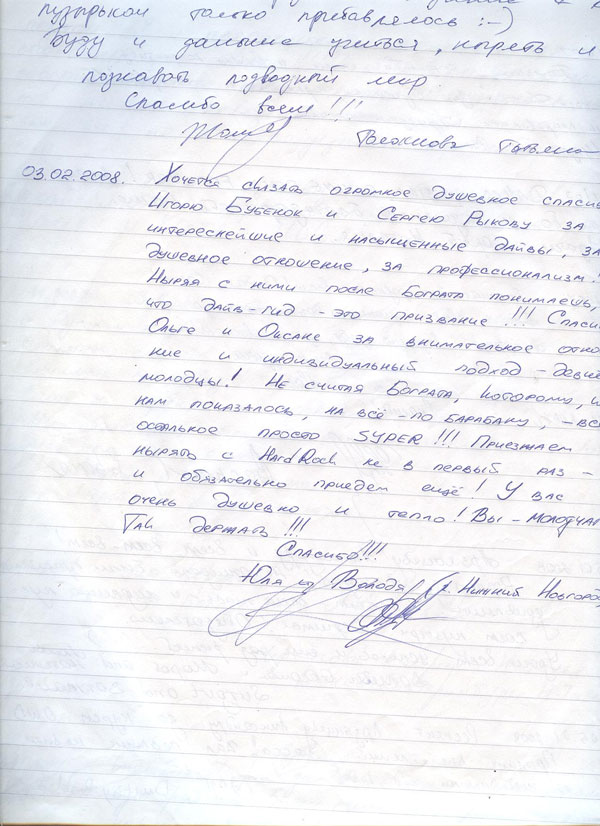 пузырьков только прибавлялось :-)
Буду и дальше учиться, нырять и
познавать подводный мир.
Спасибо всем!!!
Татьяна
03.02.2008. Хочется сказать огромное душевное спаси
Игорю Бубенок и Сергею Рыкову за
интереснейшие и насыщенные дайвы, за
душевное отношение, за профессионализм!
Ныряя с ними после Бограта понимаешь,
что дайв-гид - это призвание!!! Спаси
Ольге и Оксане за внимательное отно
ние и индивидуальный подход - девч
молодцы! Не считая Бограта, которому, к
нам показалось, на всё - по барабану, - вс
остальное просто SYPER!!! Приезжаем
нырять с HardRock не в первый раз -
и обязательно приедем ещё! У вас
очень душевно и тепло! Вы - молодчаг
Так держать!!!
Спасибо!!!
Юля и Володя г. Нижний Новгород